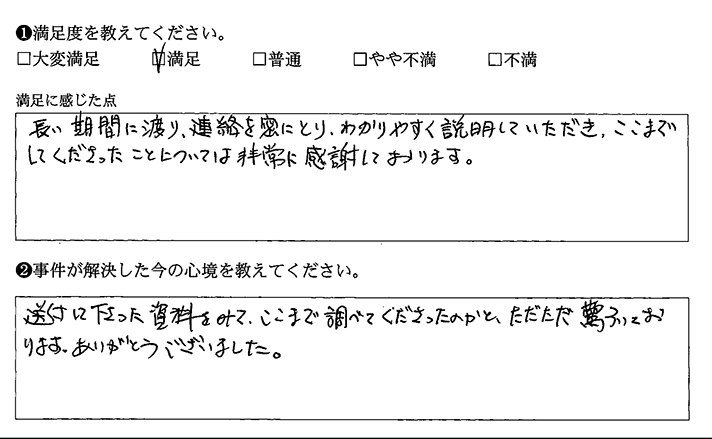 ❶満足度を教えてください。
□大変満足 ☑満足 □普通 □やや不満 □不満
満足に感じた点
長い期間に渡り、連絡を密にとり、わかりやすく説明していただき、ここまで
してくださったことについては非常に感謝しております。
❷事件が解決した今の心境を教えてください。
送付して下さった資料をみて、ここまで調べてくださったのかと、ただただ驚いてお
ります。ありがとうございました。